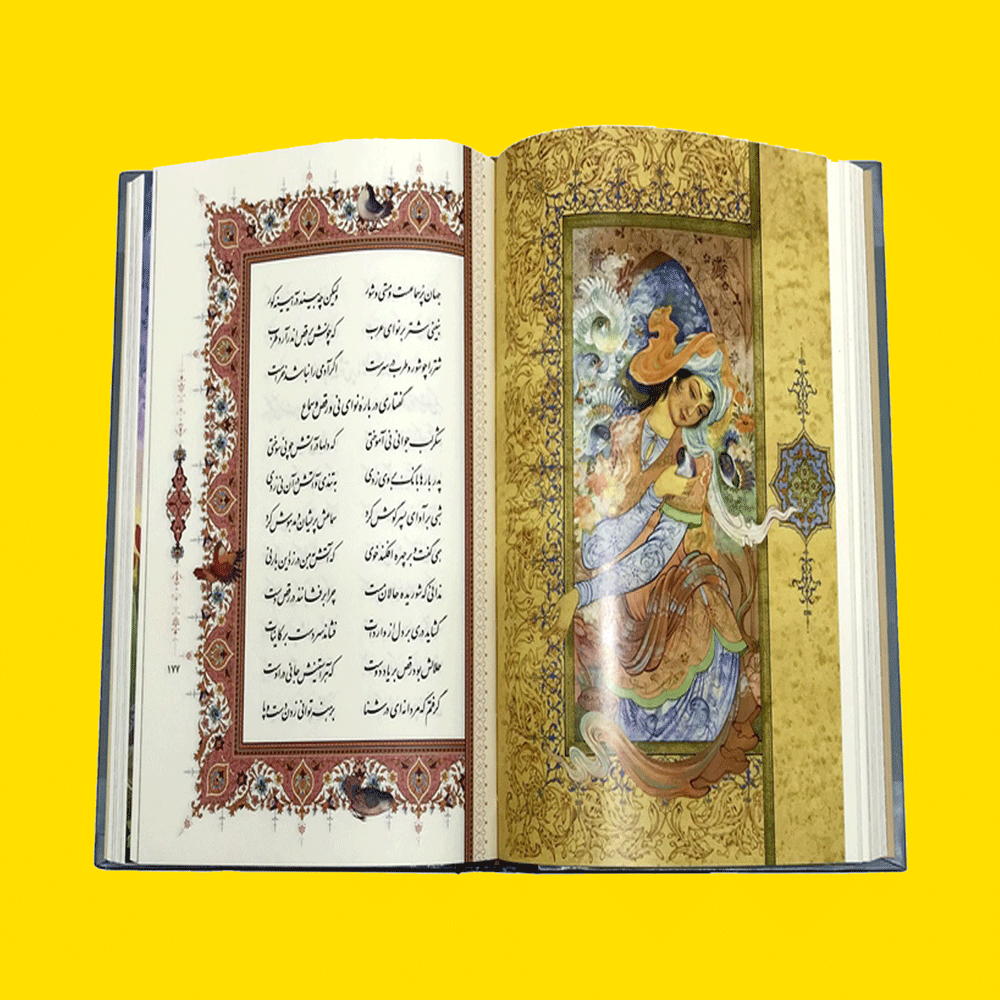 جهان پر سماعست و مستی و شور ولیکن چه بیند در آیینه کور
نبینی شتر بر نوای عرب که چونش برقص اندر آرد طرب
شتر را چو شور و طرب در سرست اگر آدمی را نباشد خرست
گفتاری درباره نوای نی و رقص و سماع
شکر لب جوانی نی آموختی که دلها در آتش چو نی سوختی
پدر بارها بانگ بر وی زدی به تندی و آتش در آن نی زدی
شبی بر آوای پسر گوش کرد سماعش پریشان و مدهوش کرد
همی گفت و بر چهره افکنده خوی که آتش به من در زد این بار نی
ندانی که شوریده حالان مست چرا برفشانند در رقص دست
گشاید دری بر دل از واردات فشاند سر دست بر کاینات
حلالش بود رقص بر یاد دوست که هر آستینش جانی در اوست
گرفتم که مردانه ای در شنا برهنه توانی زدن دست و پا
۱۷۷